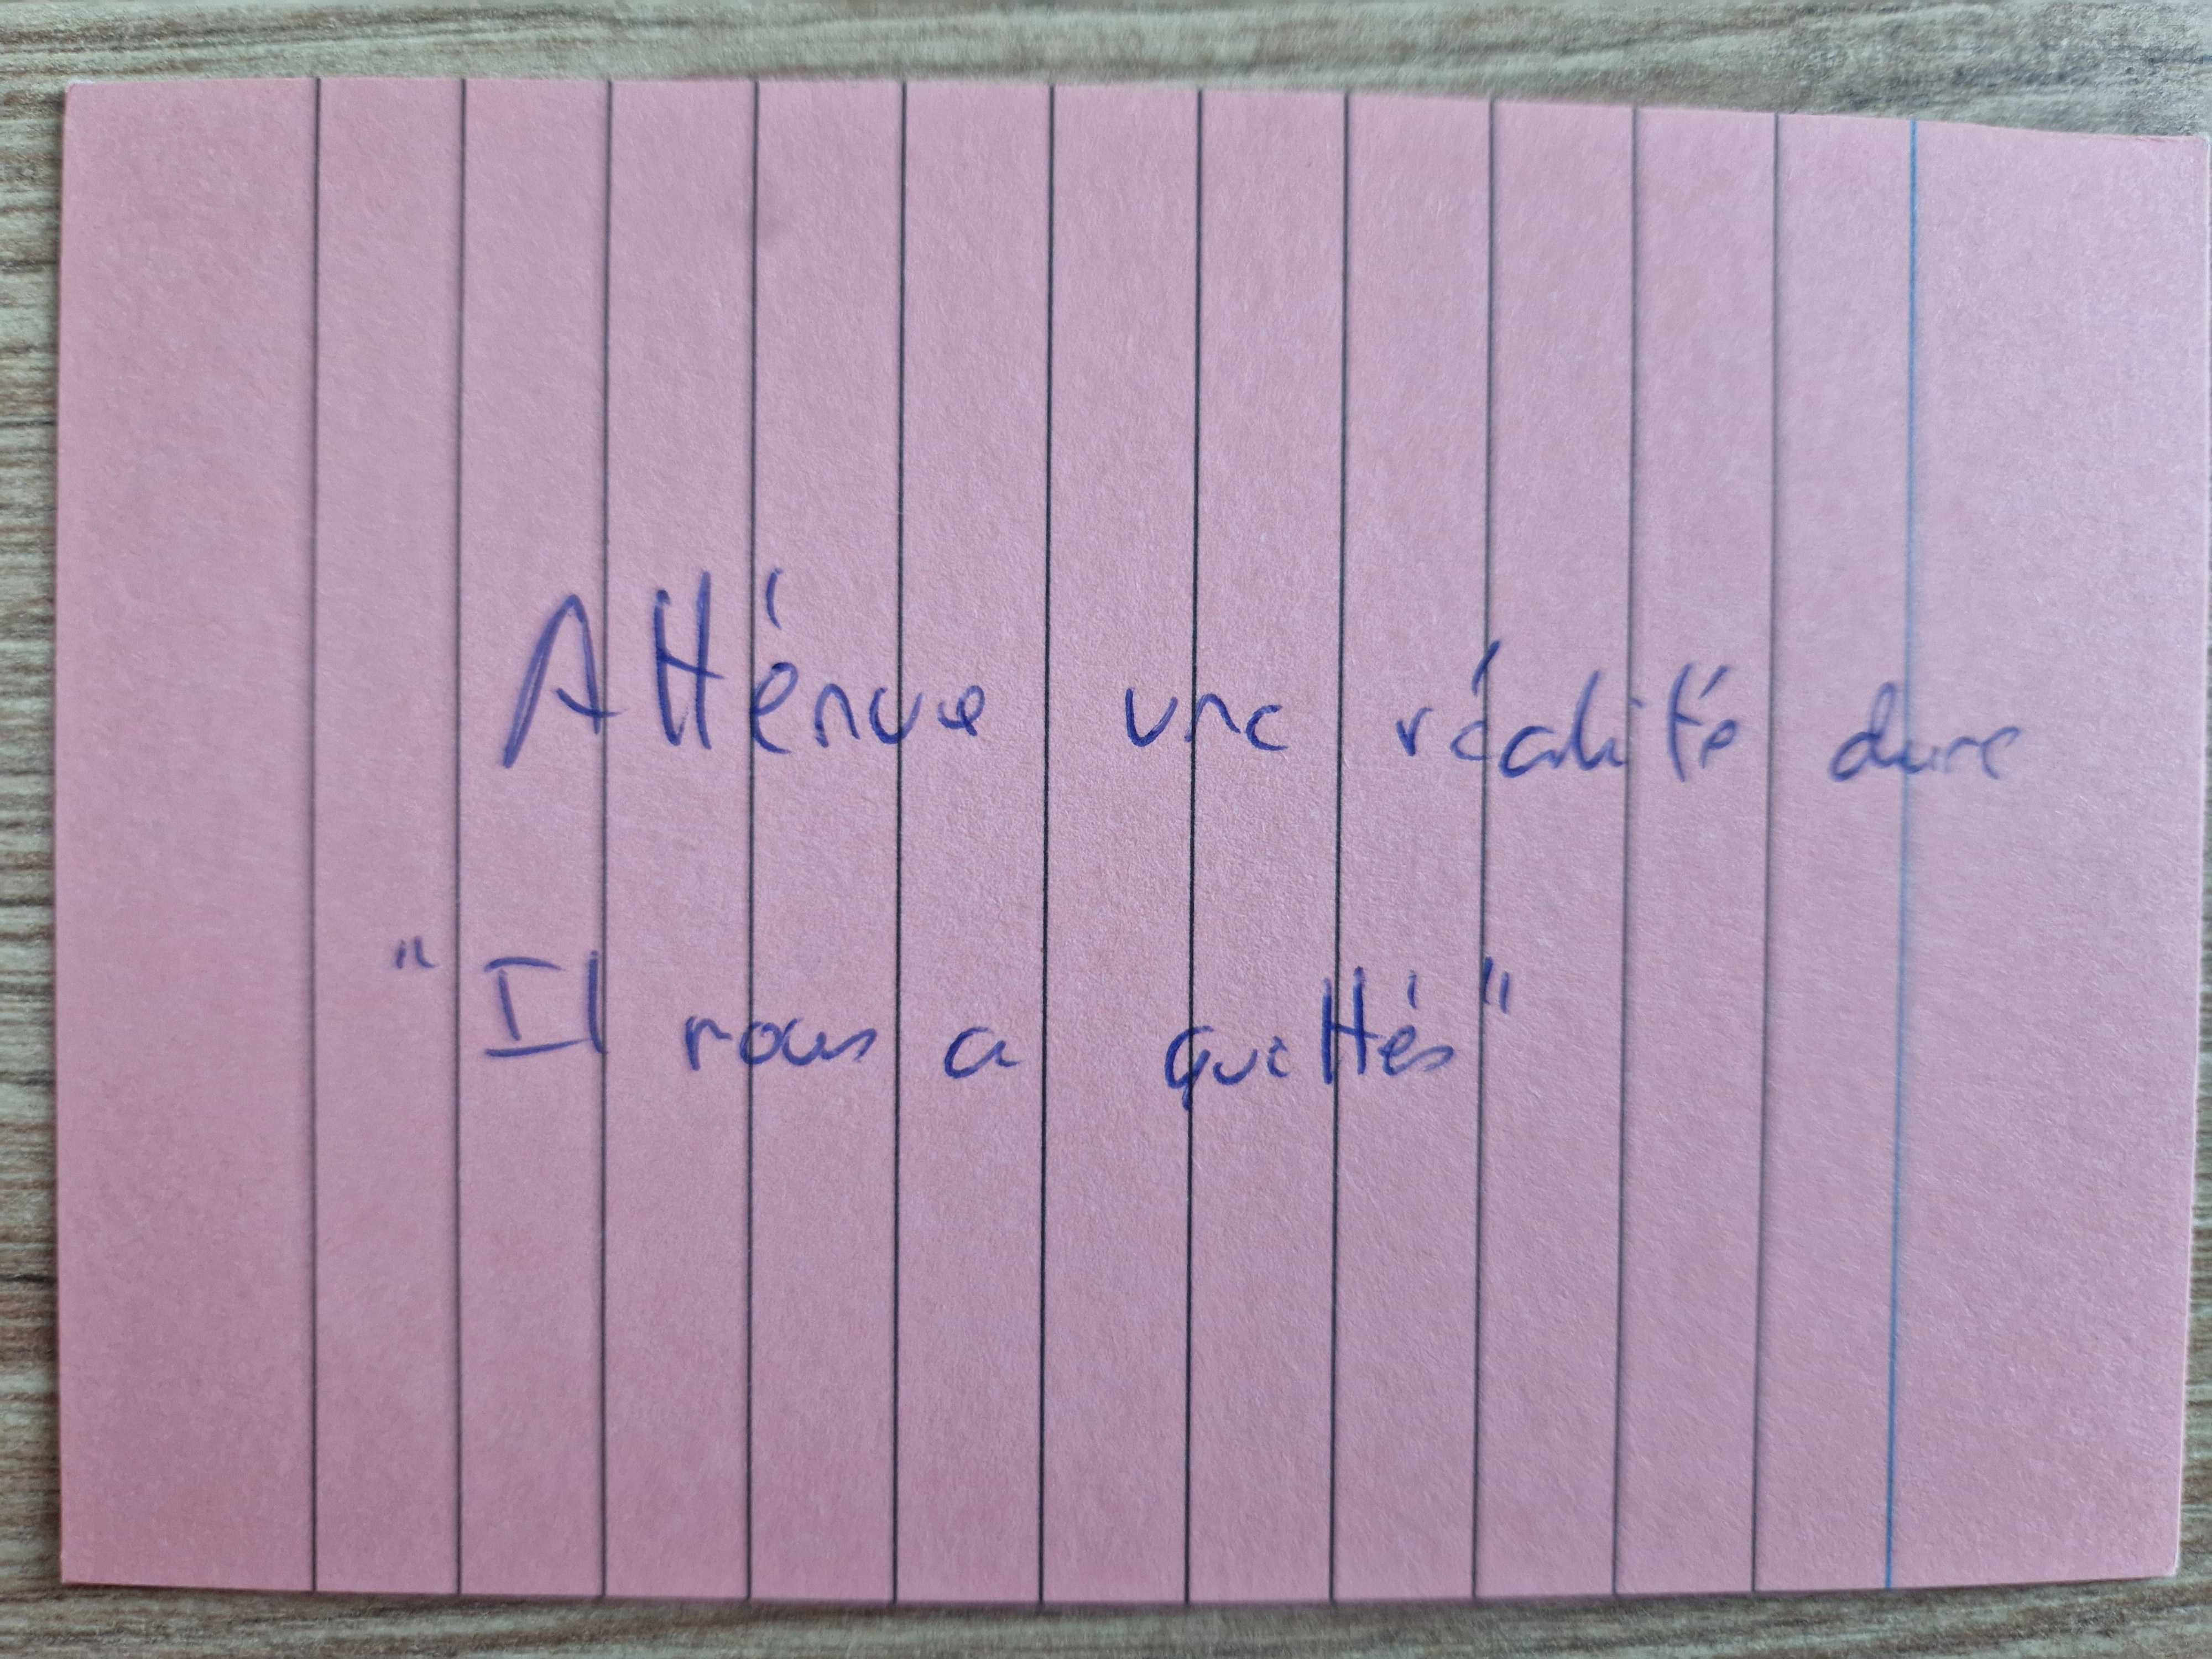 Atténue une réalité dure
"Il nous a quittés"